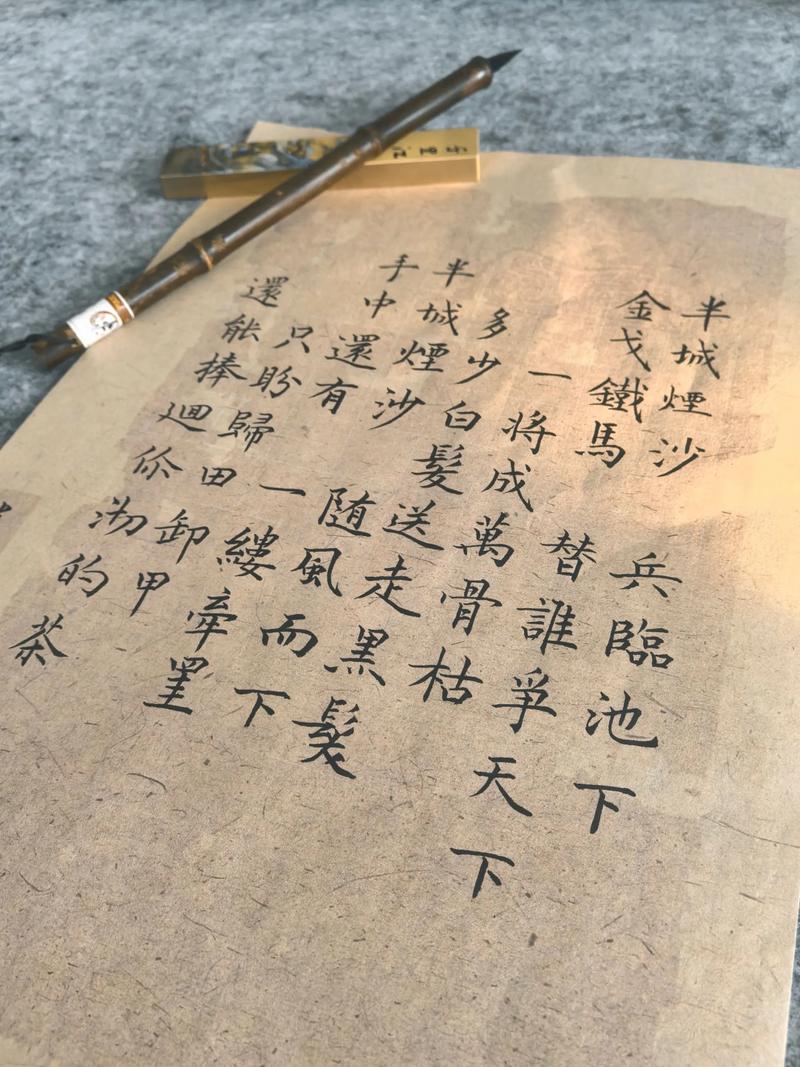 半城煙沙 兵臨池下
金戈鐵馬 替誰爭天下
一將成萬骨枯
多少白髮送走黑髮
半城煙沙 随風而下
手中還有 一縷牽罣
只盼歸田卸甲
還能捧迴你沏的茶